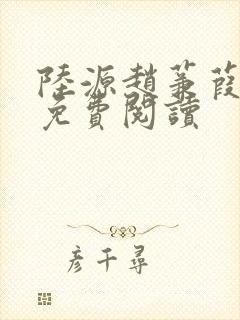 陸源趙蒹葭
免費閱讀
彥千尋